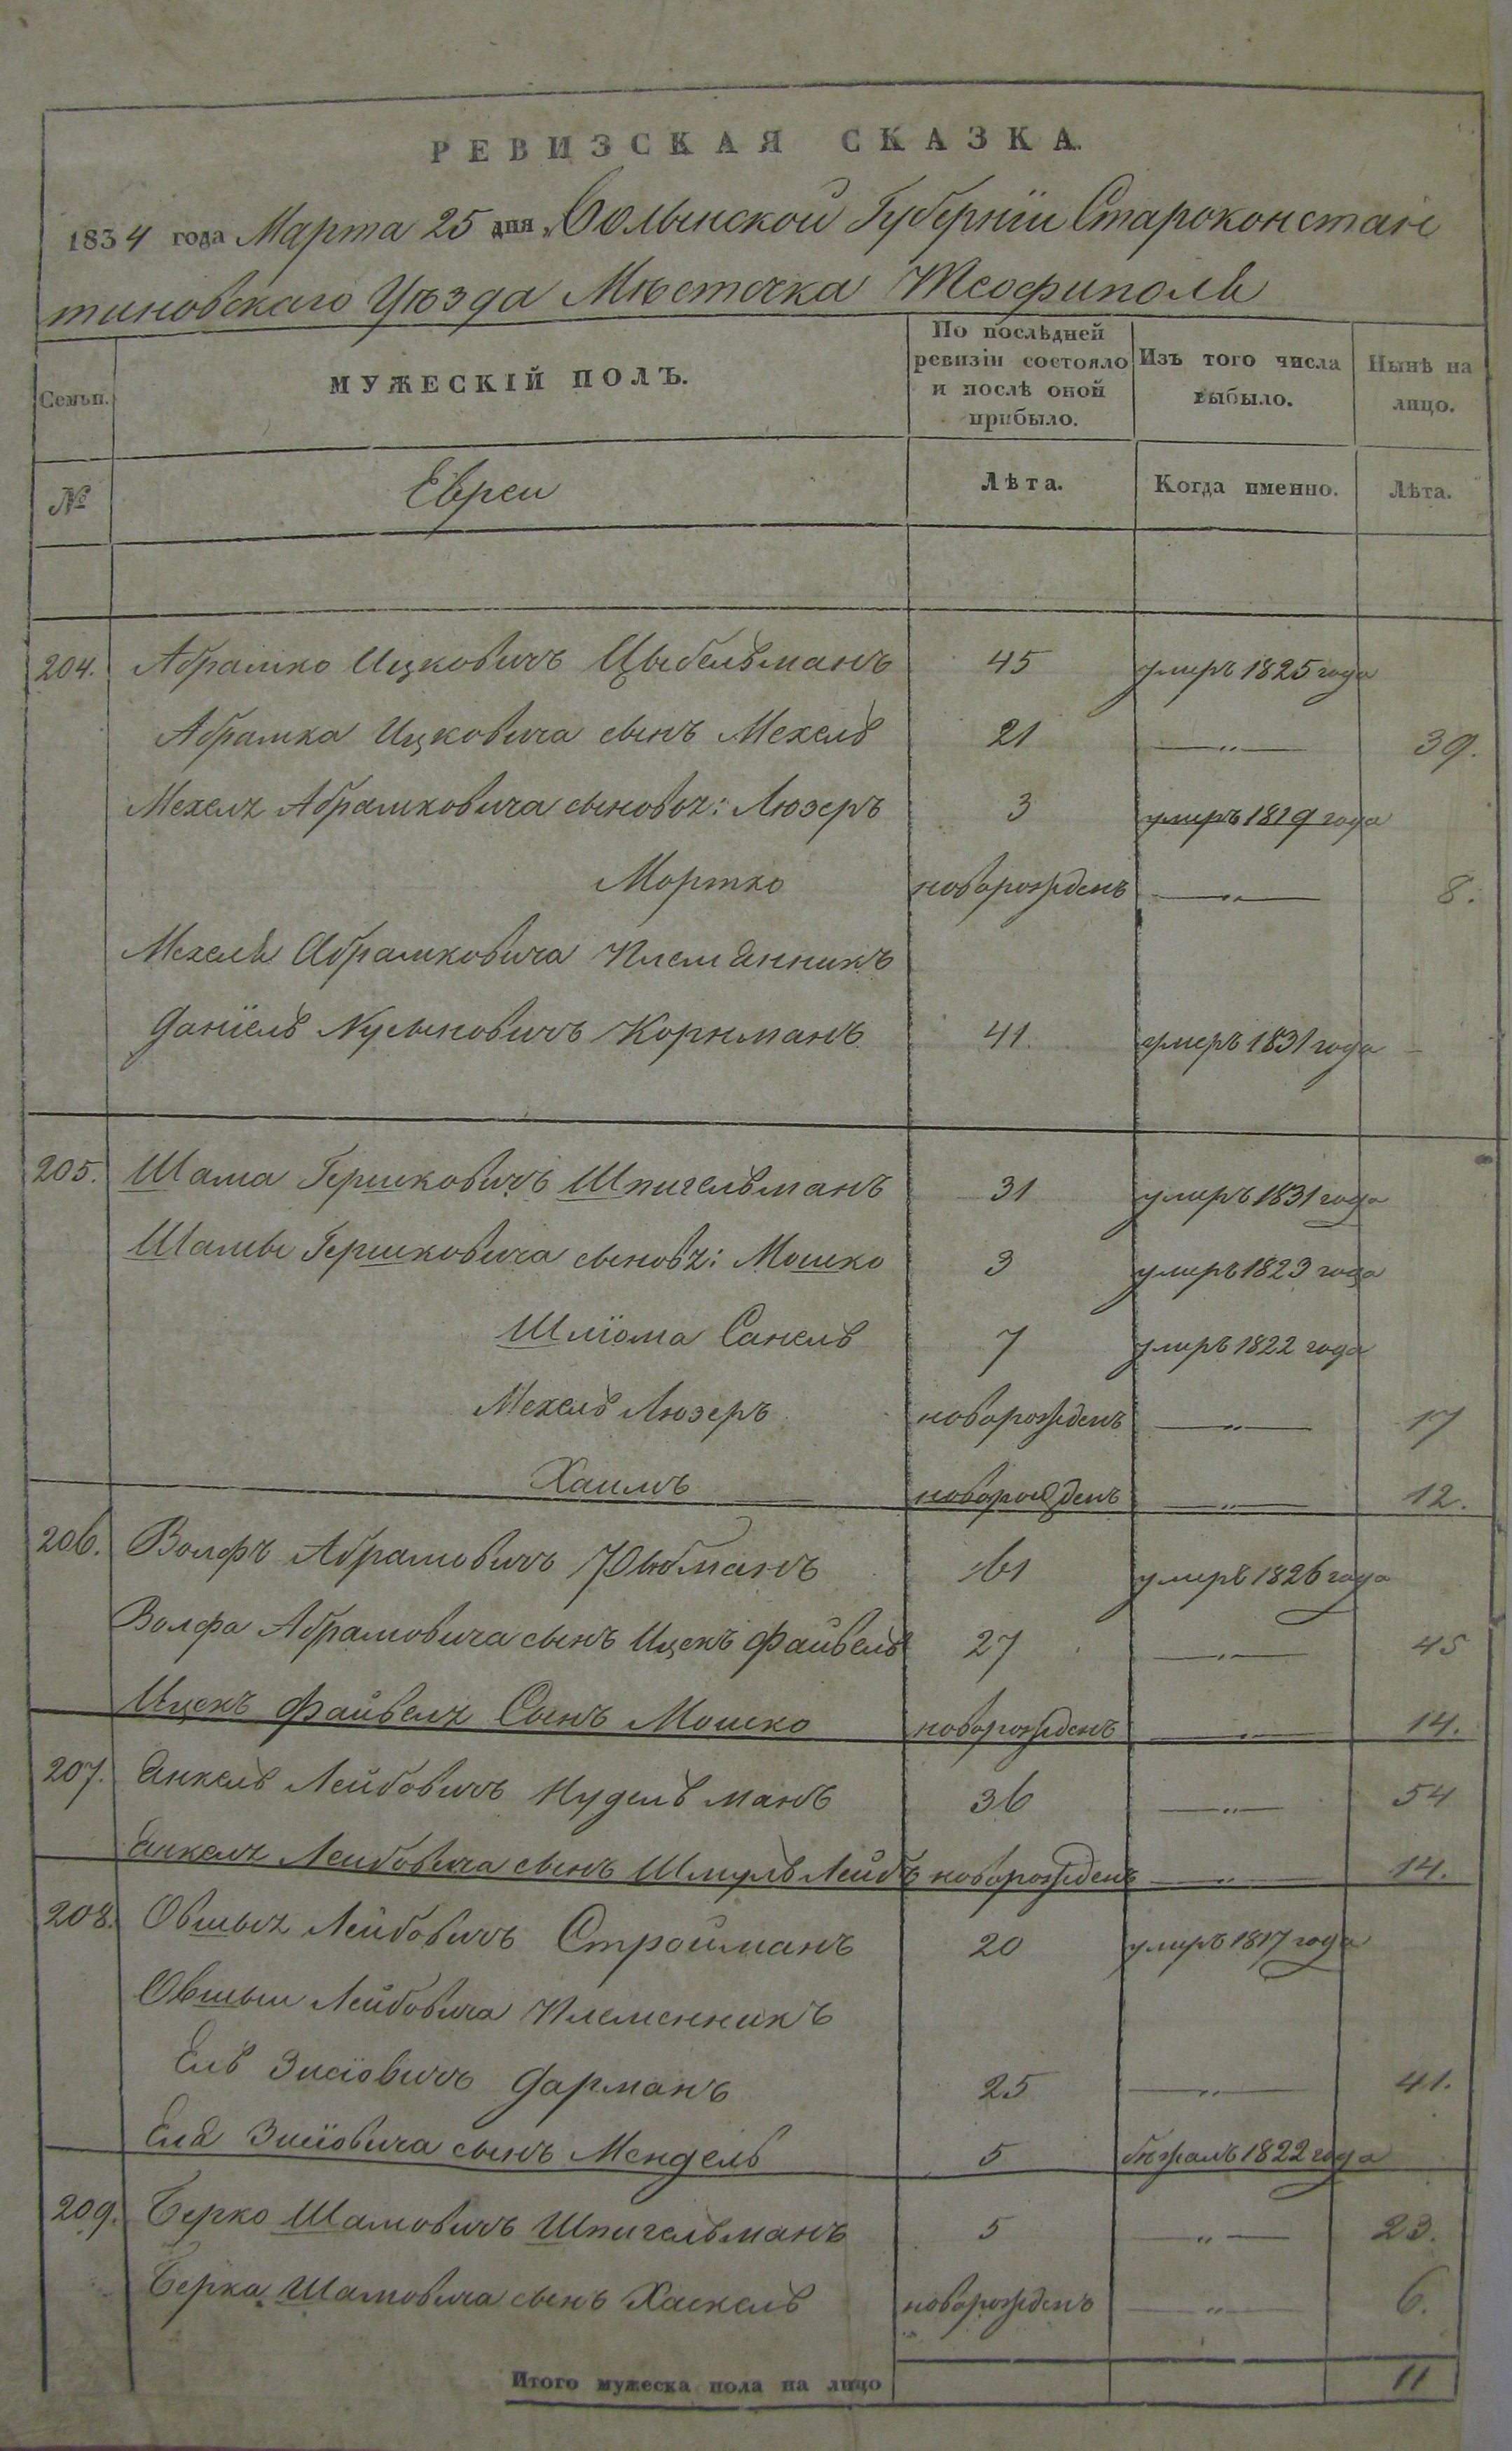 РЕВИЗСКАЯ СКАЗКА.
1834 года Марта 25 дня Волынской Губернїи Староконстан
тиновскаго Уѣзда Мѣстечка Теофиполь
Семьи. МУЖЕСКІЙ ПОЛЪ. По послѣдней ревизіи состояло и послѣ оной прибыло. Изъ того числа выбыло. Нынѣ на лицо.
№ Евреи Лѣта. Когда именно. Лѣта.
204. Абрамко Ицковичъ Цыбельманъ 45 умеръ 1825 года
Абрамка Ицковича сынъ Мехель 21 —„— 39.
Мехеля Абрамковича сыновья: Люзеръ 3 умеръ 1819 года
Мортко новорожденъ —„— 8.
Мехеля Абрамковича Племянникъ
Данїель Нусыновичъ Корнманъ 41. умеръ 1831 года
205. Шама Гершковичъ Шпигельманъ 31 умеръ 1831 года
Шамы Гершковича сыновя: Мошко 3 умеръ 1823 года
Шлїома Санель 7 умеръ 1822 года
Мехель Люзеръ новорожденъ —„— 17
Хаимъ новорожденъ —„— 12.
206. Волфъ Абрамовичъ 61 умеръ 1826 года
Волфа Абрамовича сынъ Ицекъ Файвель 27 —„— 45
Ицекъ Файвеля Сынъ Мошко новорожденъ —„— 14.
207. Янкель Лейбовичъ Нудельманъ 36 —„— 54
Янкеля Лейбовича сынъ Шмуль Лейбъ новорожденъ —„— 14.
208. Овшыя Лейбовичъ Строиманъ 20 умеръ 1817 года
Овшыи Лейбовича Племенникъ
Ель Зисїовичъ Фарманъ 25 —„— 41.
Еля Зисїовича сынъ Мендель 5 бѣжалъ 1822 года
209. Берко Шамовичъ Шпигельманъ 5 —„— 23.
Берка Шамовича сынъ Хаскель новорожденъ —„— 6.
Итого мужеска пола на лицо 11